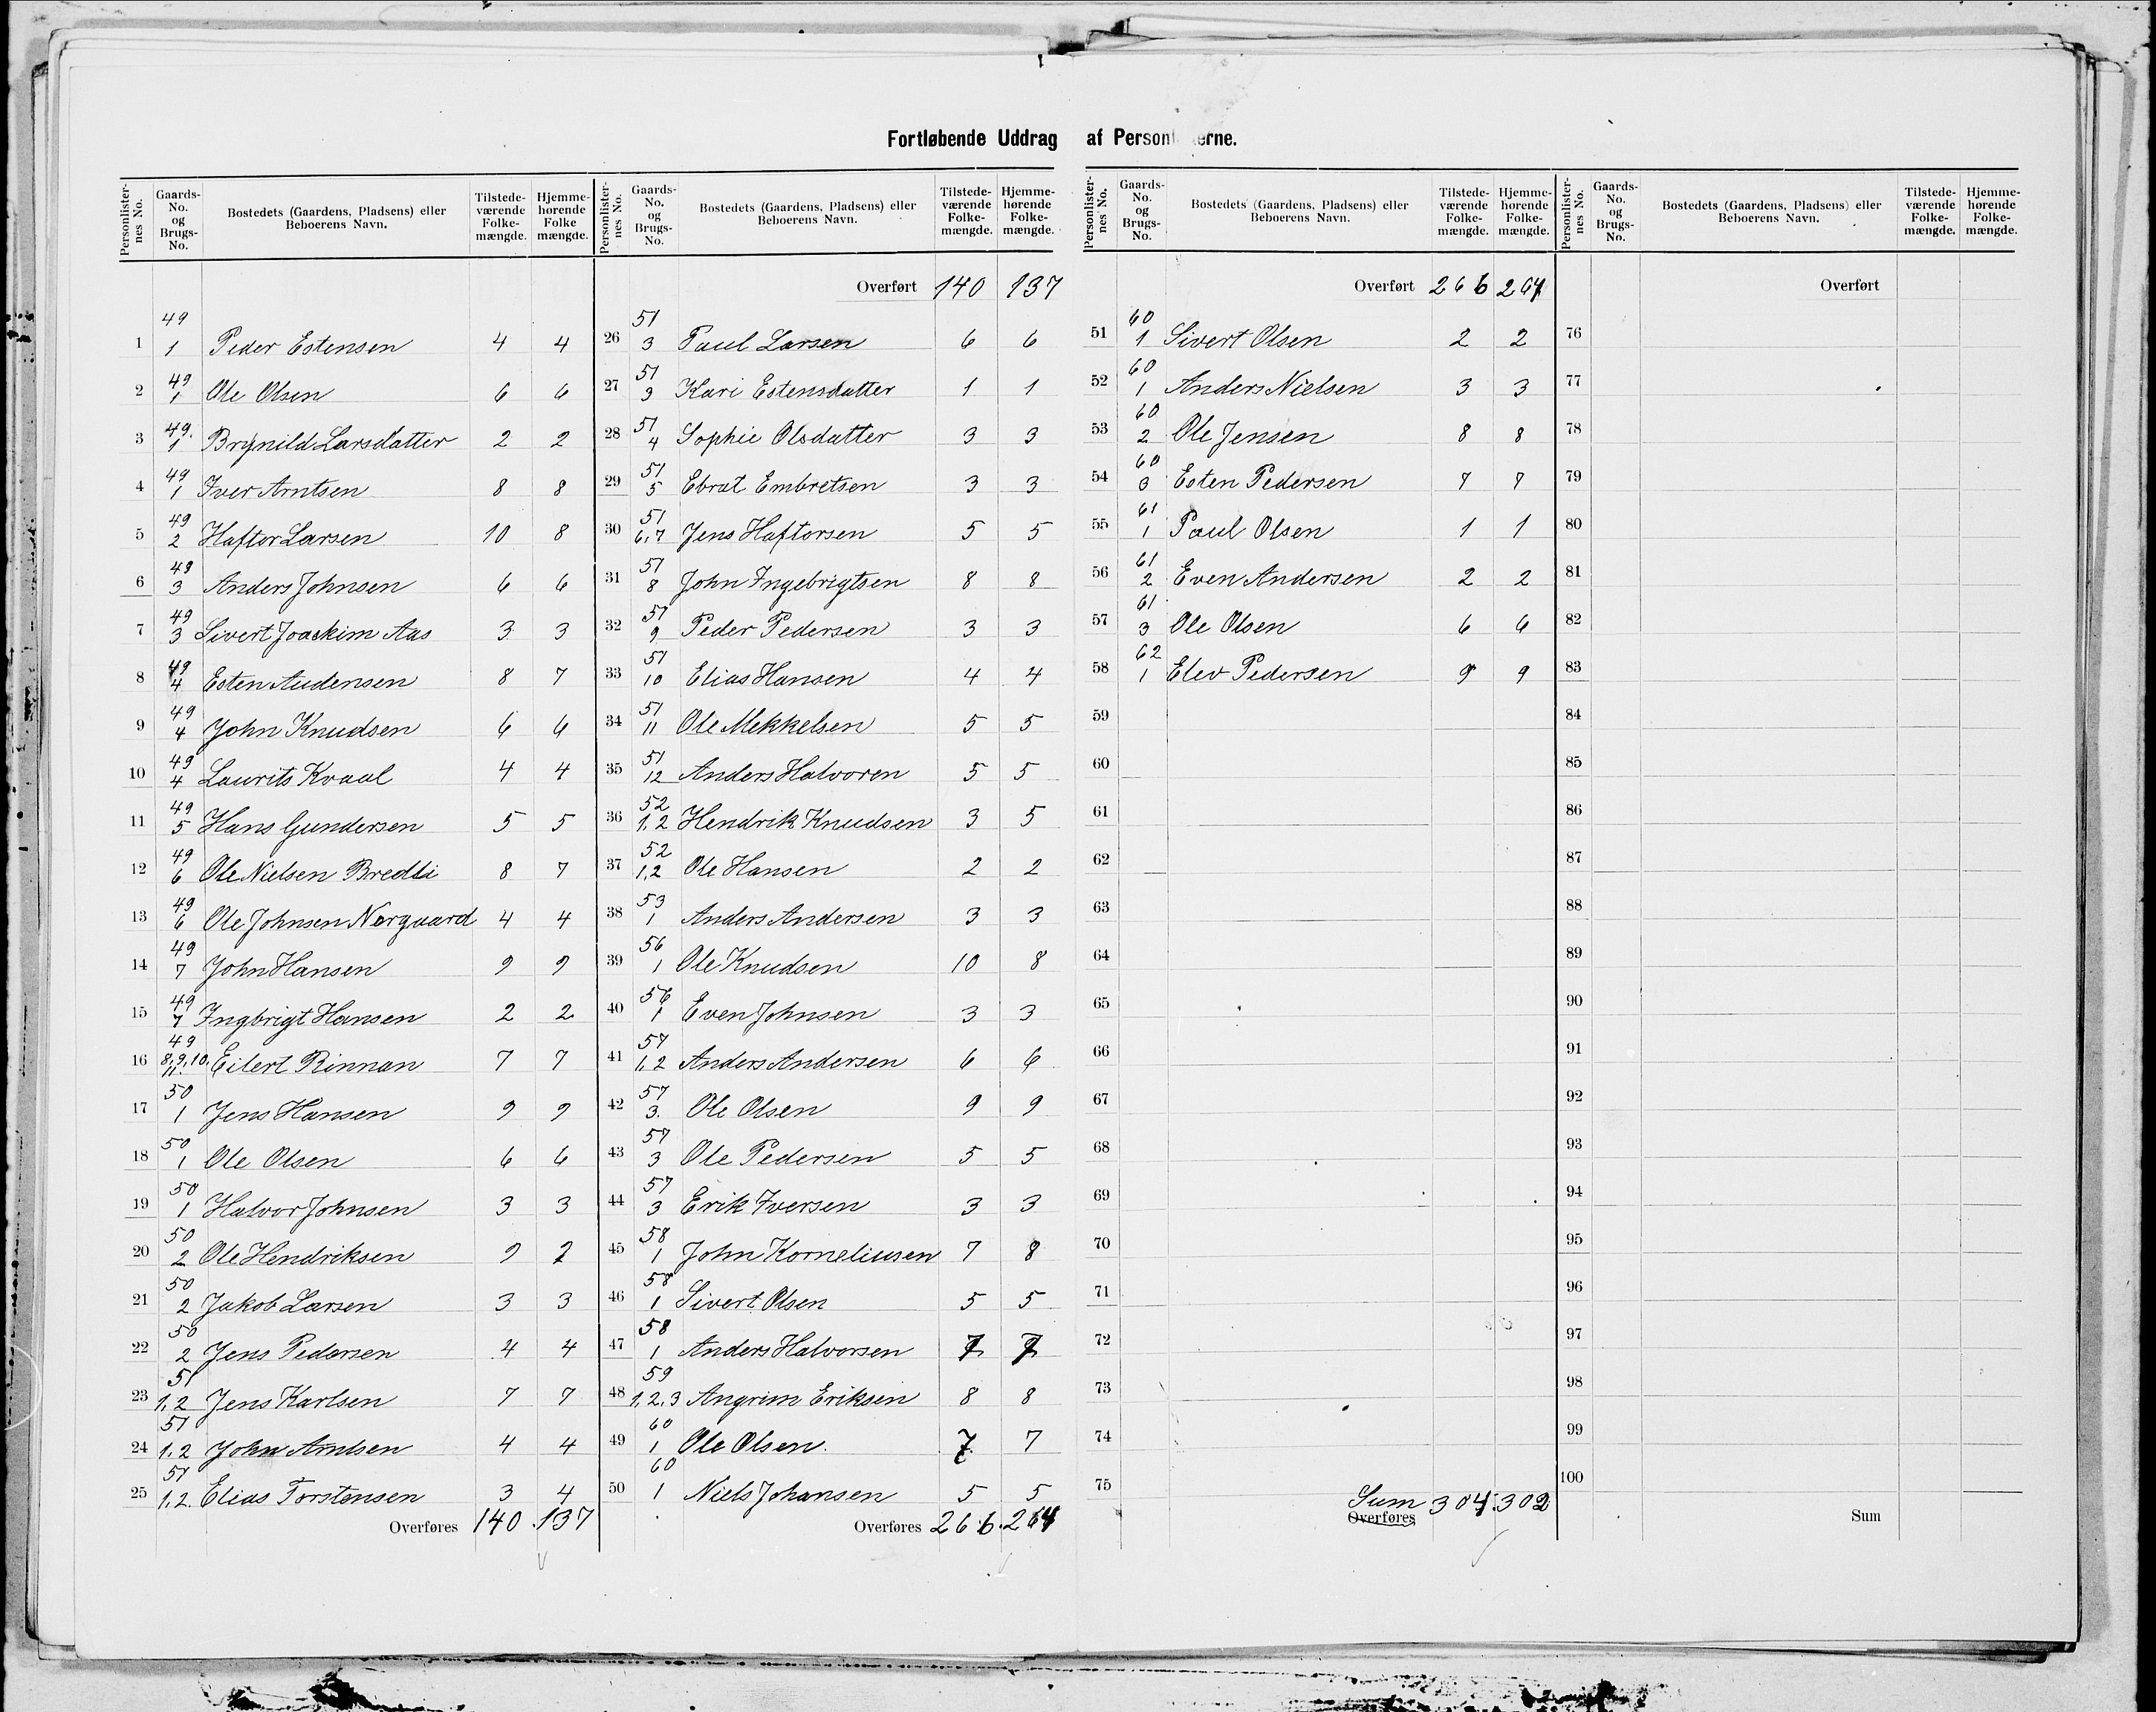 Fortløbende Uddrag af Person erne.
Personlister-nes No. | Gaards-No. og Brugs-No. | Bostedets (Gaardens, Pladsens) eller Beboerens Navn. | Tilstede-værende Folke-mængde. | Hjemme-hørende Folke mængde.
1 | 49 1 | Peder Estensen | 4 | 4
2 | 49 1 | Ole Olsen | 6 | 6
3 | 49. 1 | Brynild Larsdatter | 2 | 2
4 | 49 1 | Iver Arntsen | 8 | 8
5 | 49 2 | Haftor Larsen | 10 | 8
6 | 49 3 | Anders Johnsen | 6 | 6
7 | 49 3 | Sivert Joackim Aas | 3 | 3
8 | 49 4 | Esten Audensen | 8 | 7
9 | 49 4 | John Knudsen | 6 | 6
10 | 49 4 | Laurits Kvaal | 4 | 4
11 | 49 5 | Hans Gundersen | 5 | 5
12 | 49 6 | Ole Nielsen Bredli | 8 | 7
13 | 49 6 | Ole Johnsen Nørgaard | 4 | 4
14 | 49 7 | John Hansen | 9 | 9
15 | 49 7 | Ingbrigt Hansen | 2 | 2
16 | 49 8,9,10, 11 | Eilert Rinnan | 7 | 7
17 | 50 1 | Jens Hansen | 9 | 9
18 | 50 1 | Ole Olsen | 6 | 6
19 | 50 1 | Halvor Johnsen | 3 | 3
20 | 50 2 | Ole Hendriksen | 9
21 | 50 2 | Jakob Larsen | 3 | 3
22 | 50 2 | Jens Pedersen | 4 | 4
23 | 51 1,2 | Jens Karlsen | 7 | 7
24 | 51 1,2 | John Arntsen | 4 | 4
25 | 51 1,2. | Elias Torstensen | 3 | 4
Overføres 140. 137
Personlister-nes No. | Gaards-No. og Brugs-No. | Bostedets (Gaardens, Pladsens) eller Beboerens Navn. | Tilstede-værende Folke-mængde. | Hjemme-hørende Folke-mængde.
Overført 140 137
26 | 51 3 | Paul Larsen | 6 | 6
27 | 51 3 | Kari Estensdatter | 1 | 1
28 | 51 4 | Sophie Olsdatter | 3 | 3
29 | 51 5 | Ebrat Embretsen | 3 | 3
30 | 51 6,7 | Jens Haftorsen | 5 | 5
31 | 51 8 | John Ingebrigtsen | 8 | 8
32 | 51 9 | Peder Pedersen | 3 | 3
33 | 51 10 | Elias Hansen | 4 | 4
34 | 51 11 | Ole Mekkelsen | 5 | 5
35 | 51 12 | Anders Halvoren | 5 | 5
36 | 52 1,2 | Hendrik Knudsen | 3 | 5
37 | 52 1,2 | Ole Hansen | 2 | 2
38 | 53 1 | Anders Andersen | 3 | 3
39 | 56 1 | Ole Knudsen | 10 | 8
40 | 56 1 | Even Johnsen | 3 | 3
41 | 57 1,2 | Anders Andersen | 6 | 6
42 | 57 3. | Ole Olsen | 9 | 9
43 | 57 3 | Ole Pedersen | 5 | 5
44 | 57 3 | Erik Iversen | 3 | 3
45 | 58 1 | John Korneliusen | 7 | 8
46 | 58 1 | Sivert Olsen | 5 | 5
47 | 58 1 | Anders Halvorsen | 7 | 7
48 | 59 1,2,3 | Angrim Eriksen | 8 | 8
49 | 60 1 | Ole Olsen. | 7 | 7
50 | 60 1 | Niels Johansen | 5 | 5
Overføres 266. 264
Personlister-nes No. | Gaards-No. og Brugs-No. | Bostedets (Gaardens, Pladsens) eller Beboerens Navn. | Tilstede-værende Folke-mængde. | Hjemme-hørende Folke-mængde.
Overført 266 264
51 | 60 1 | Sivert Olsen | 2 | 2
52 | 60 1 | Anders Nielsen | 3 | 3
53 | 60 2 | Ole Jensen | 8 | 8
54 | 60 3 | Esten Pedersen | 7 | 7
55 | 61 1 | Paul Olsen | 1 | 1
56 | 61 2 | Even Andersen | 2 | 2
57 | 61 3 | Ole Olsen | 6 | 6
58 | 62 1 | Elev Pedersen | 9 | 9
59
60
61
62
63
64
65
66
67
68
69
70
71
72
73
74
75
Sum 304. 302
Overføres
Personlister-nes No. | Gaards-No. og Brugs-No. | Bostedets (Gaardens, Pladsens) eller Beboerens Navn. | Tilstede-værende Folke-mængde. | Hjemme-hørende Folke-mængde.
Overført
76
77
78
79
80
81
82
83
84
85
86
87
88
89
90
91
92
93
94
95
96
97
98
99
100
Sum